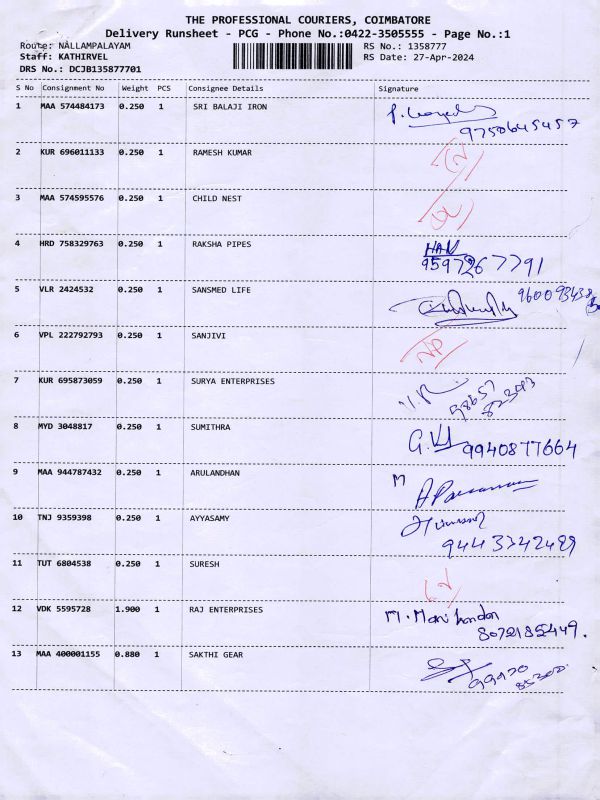 THE PROFESSIONAL COURIERS, COIMBATORE
Delivery Runsheet - PCG - Phone No.:0422-3505555 - Page No.:1
Route: NALLAMPALAYAM
Staff: KATHIRVEL
DRS No.: DCJB135877701
RS No.: 1358777
RS Date: 27-Apr-2024
S No Consignment No Weight PCS Consignee Details Signature
1 MAA 574484173 0.250 1 SRI BALAJI IRON
9750645457
2 KUR 696011133 0.250 1 RAMESH KUMAR
3 MAA 574595576 0.250 1 CHILD NEST
4 HRD 758329763 0.250 1 RAKSHA PIPES
9597267791
5 VLR 2424532 0.250 1 SANSMED LIFE
6 VPL 222792793 0.250 1 SANJIVI
7 KUR 695873059 0.250 1 SURYA ENTERPRISES
8 MYD 3048817 0.250 1 SUMITHRA
9940877664
9 MAA 944787432 0.250 1 ARULANDHAN
M
10 TNJ 9359398 0.250 1 AYYASAMY
9443342489
11 TUT 6804538 0.250 1 SURESH
12 VDK 5595728 1.900 1 RAJ ENTERPRISES M. Manikandan
8072185449.
13 MAA 400001155 0.880 1 SAKTHI GEAR